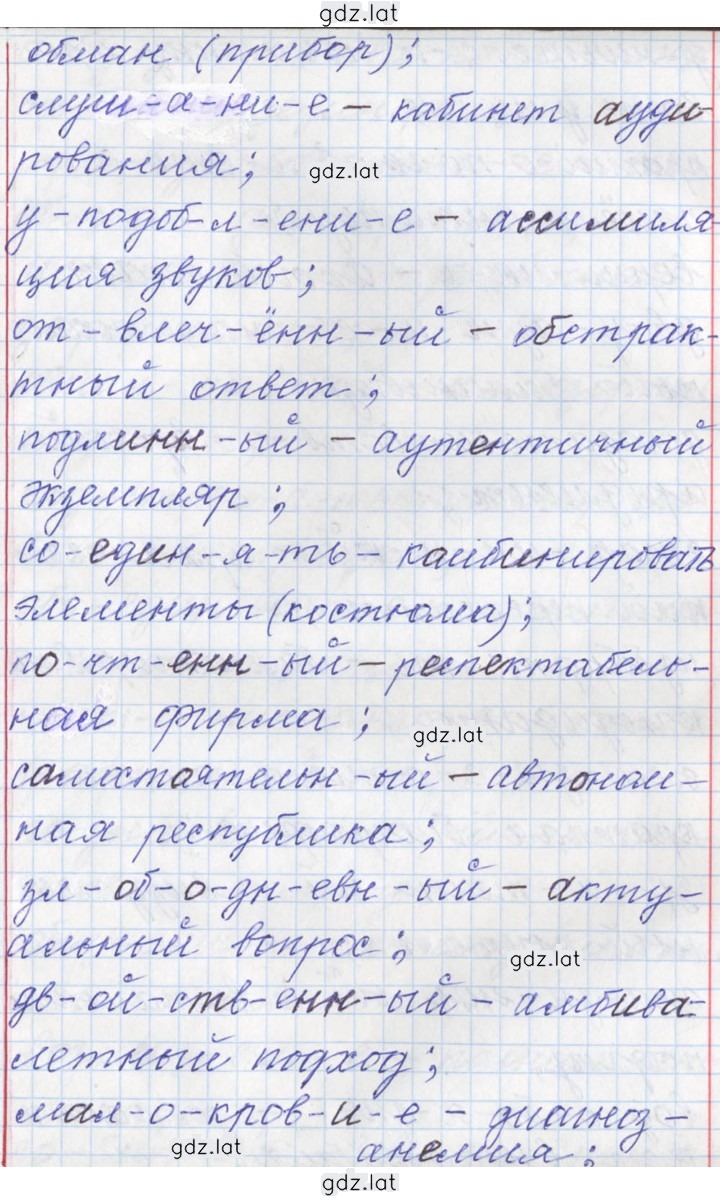 gdz.lat
обман (прибор);
слуш-а-ни-е – кабинет ауди-
рования;
gdz.lat
у-подоб-л-ени-е – ассимиля-
ция звуков;
от-влеч-ённ-ый – обстрак-
тный ответ;
подлинн-ый – аутентичный
экземпляр;
со-един-я-ть – комбинировать
элементы (костюма);
по-чт-енн-ый – респектабель-
ная фирма;
gdz.lat
самостоятельн-ый – автоном-
ная республика;
зл-об-о-дн-евн-ый – акту-
альный вопрос;
gdz.lat
дв-ой-ств-енн-ый – амбива-
летный подход;
мал-о-кров-и-е – диагноз –
gdz.lat
анемия;
gdz.lat